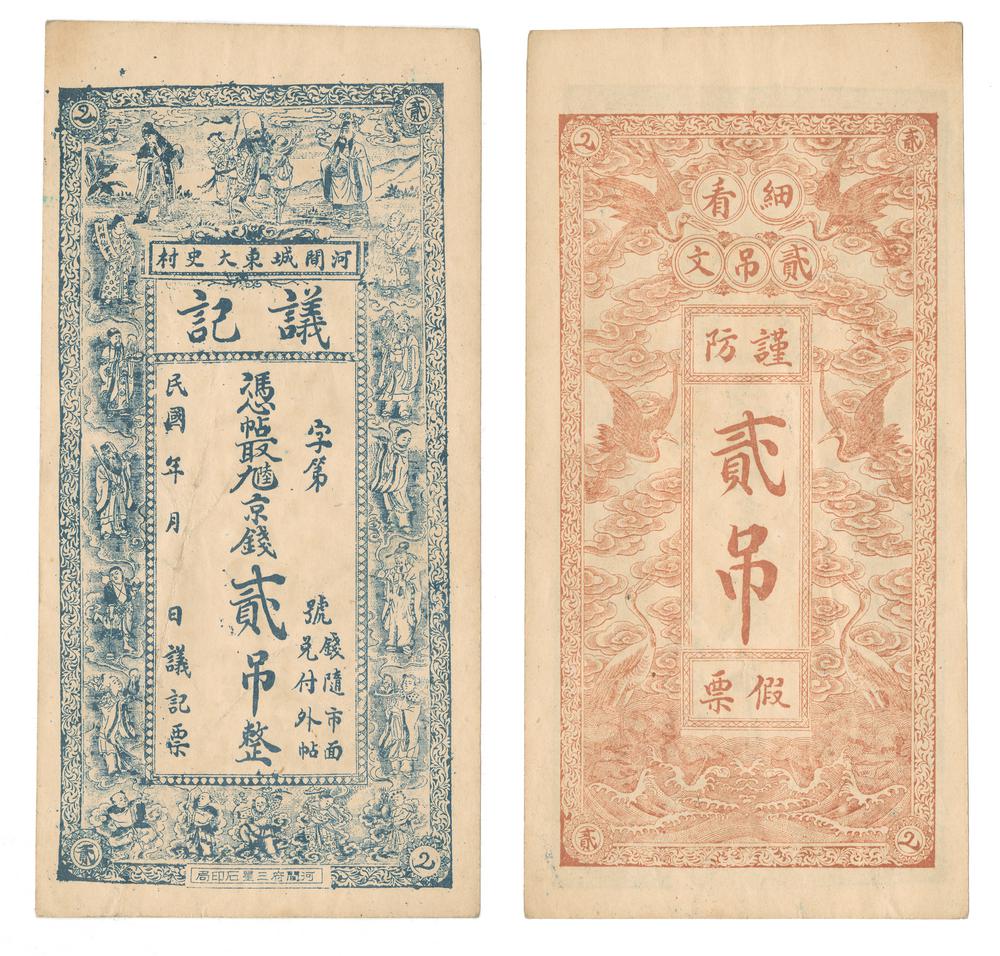 2 貳
河間城東大史村
議記
字第 號
錢隨市面
兌付外帖
憑帖取九陸京錢貳吊整
民國 年 月 日議記票
貳 2
河間府三星石印局
2 貳
細看
貳吊文
謹防
貳吊
假票
貳 2